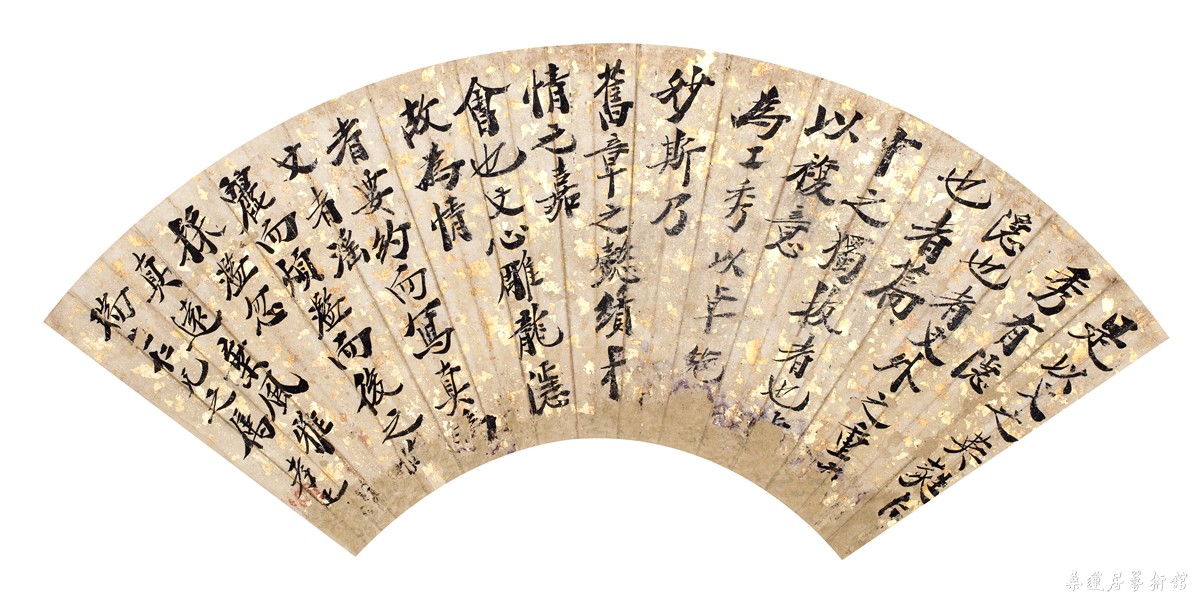 是以文之英蕤有
秀有隱
隱也者文外之重
也者篇
中之獨拔者也
以複意
為工秀以卓絕
妙斯乃
舊章之懿績才
情之嘉
會也文心雕龍隱
故為情
者要約而寫真為
文者淫
麗而煩濫而後之作
採濫忽
真遠棄風雅
仁兄之屬
桑蓮居藝術館